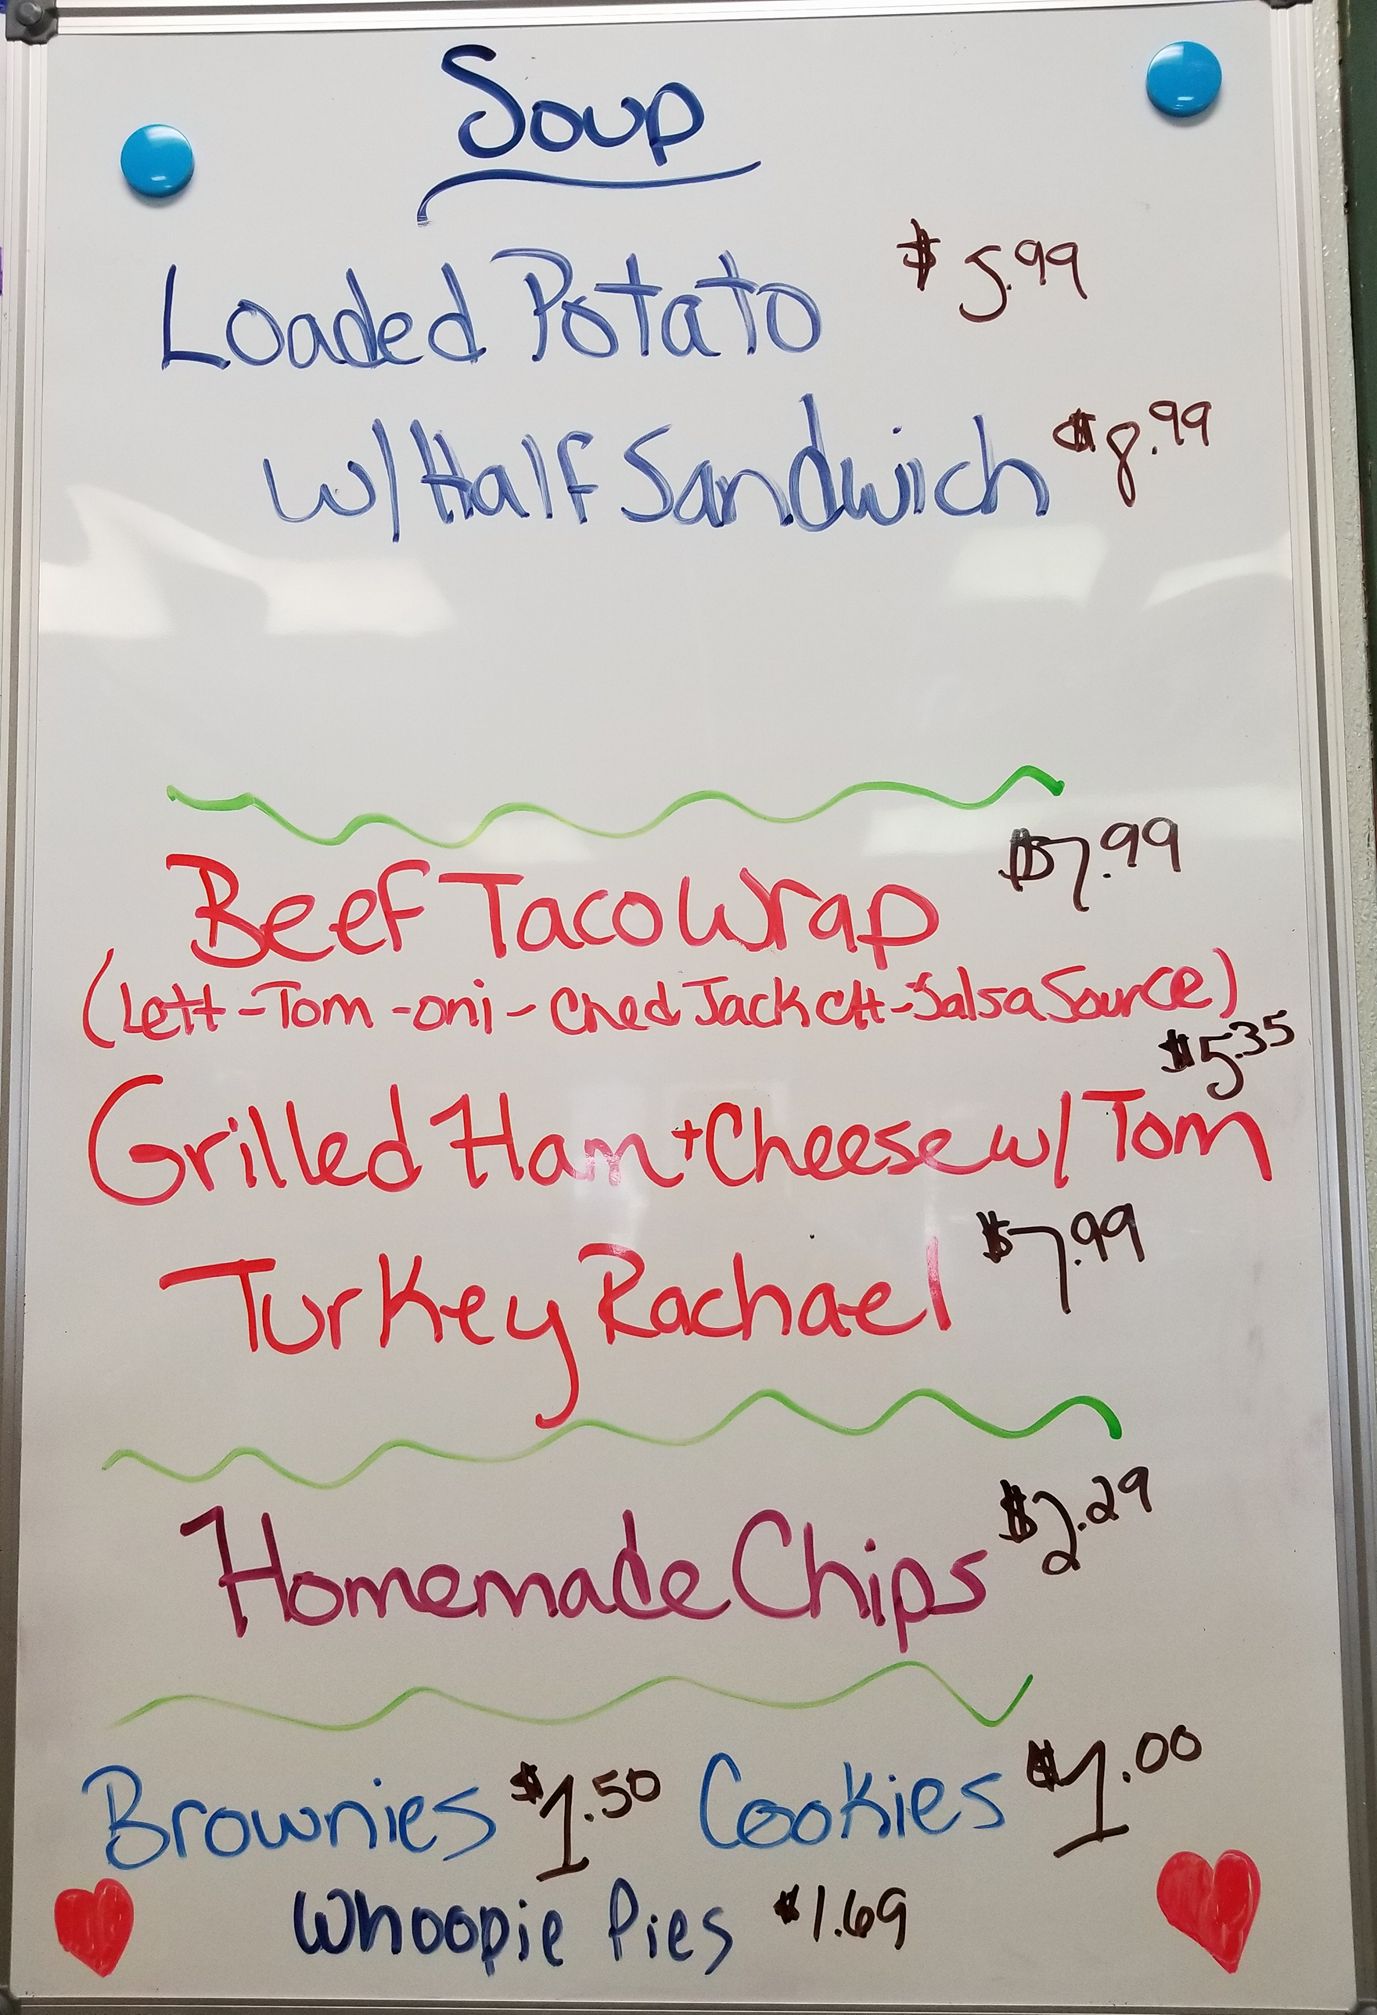 Soup
Loaded Potato $5.99
w/Half Sandwich $8.99
Beef Taco Wrap $7.99
(Lett-Tom-oni-Ched Jack ch-Salsa Source)
$5.35
Grilled Ham+Cheese w/ Tom
Turkey Rachael $7.99
Homemade Chips $2.29
Brownies $1.50 Cookies $1.00
Whoopie Pies $1.69